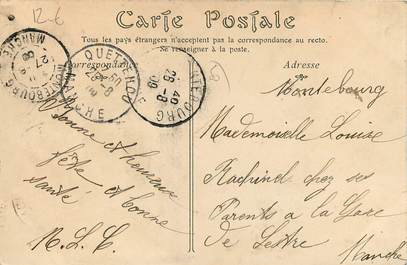 12-6
Carte Postale
Tous les pays étrangers n'acceptent pas la correspondance au recto.
Se renseigner à la poste.
Correspondance
Adresse
MONTEBOURG
MANCHE
QUETTEHOU
MANCHE
Bonne et heureuse
fête et bonne
santé
Montebourg
Mademoiselle Louise
chez ses
Parents a la Gare
de Lestre
Manche